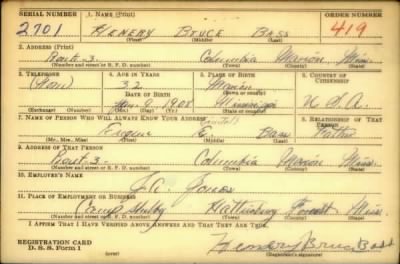 SERIAL NUMBER 1. NAME (Print) ORDER NUMBER
2701 HENERY BRUCE BASS 419
(First) (Middle) (Last)
2. ADDRESS (Print)
Rout-3- Columbia Marion Miss.
(Number and street or R. F. D. number) (Town) (County) (State)
3. TELEPHONE 4. AGE IN YEARS 5. PLACE OF BIRTH 6. COUNTRY OF CITIZENSHIP
32 Marion
DATE OF BIRTH (Town or county)
8, 1908 Mississippi U.S.A.
(Exchange) (Number) (Mo.) (Day) (Yr.) (State or country)
7. NAME OF PERSON WHO WILL ALWAYS KNOW YOUR ADDRESS 8. RELATIONSHIP OF THAT PERSON
E. Bass Father
(Mr., Mrs., Miss) (First) (Middle) (Last)
9. ADDRESS OF THAT PERSON
Rout-3- Columbia Marion Miss.
(Number and street or R. F. D. number) (Town) (County) (State)
10. EMPLOYER'S NAME
J.A. Jones
11. PLACE OF EMPLOYMENT OR BUSINESS
Camp Shelby Hattiesburg Forrest Miss.
(Number and street or R. F. D. number) (Town) (County) (State)
I AFFIRM THAT I HAVE VERIFIED ABOVE ANSWERS AND THAT THEY ARE TRUE.
REGISTRATION CARD
D. S. S. Form 1 Bruce Bass
(Registrant's signature)